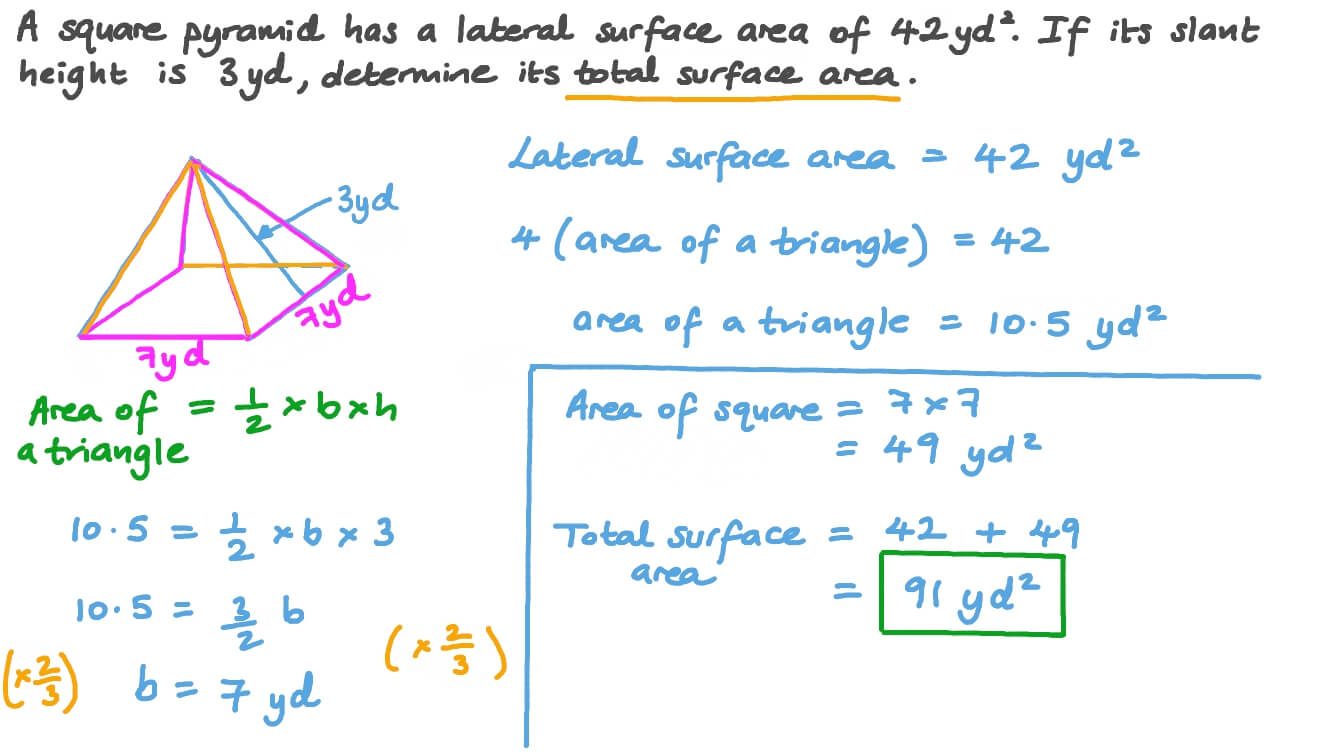 A square pyramid has a lateral surface area of 42 yd². If its slant
height is 3 yd, determine its total surface area.
3yd
7yd
7yd
Lateral surface area = 42 yd²
4 (area of a triangle) = 42
area of a triangle = 10.5 yd²
Area of = 1/2 × b × h
a triangle
10.5 = 1/2 × b × 3
10.5 = 3/2 b
(× 2/3) (× 2/3)
b = 7 yd
Area of square = 7 × 7
= 49 yd²
Total surface = 42 + 49
area
= 91 yd²